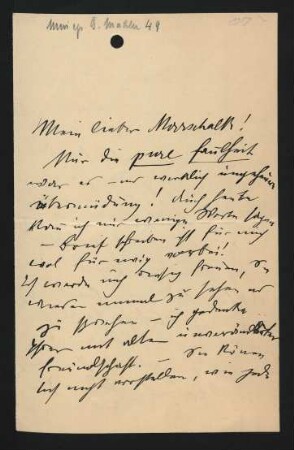 Mein lieber Marschalk!
Nur die pure Faulheit
war es – nur wirklich ungeheure
Übermüdung! Auch heute
kann ich nur wenige Worte sagen
– Brief schreiben ist für mich
wol für ewig vorbei!
Ich werde mich riesig freuen, Sie
wieder einmal zu sehen u.
zu sprechen – ich gedenke
Ihrer mit alter unveränderter
Freundschaft. – Sie können
sich nicht vorstellen, wie jede